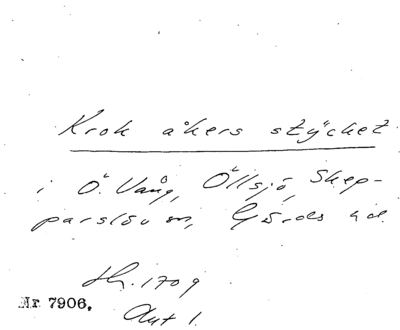 Krok åkers stycket
i Ö. Vång, Öllsjö, Skep-
parslöv sn, Gärds hd.
Hh. 1709
Akt 1.
Nr 7906.